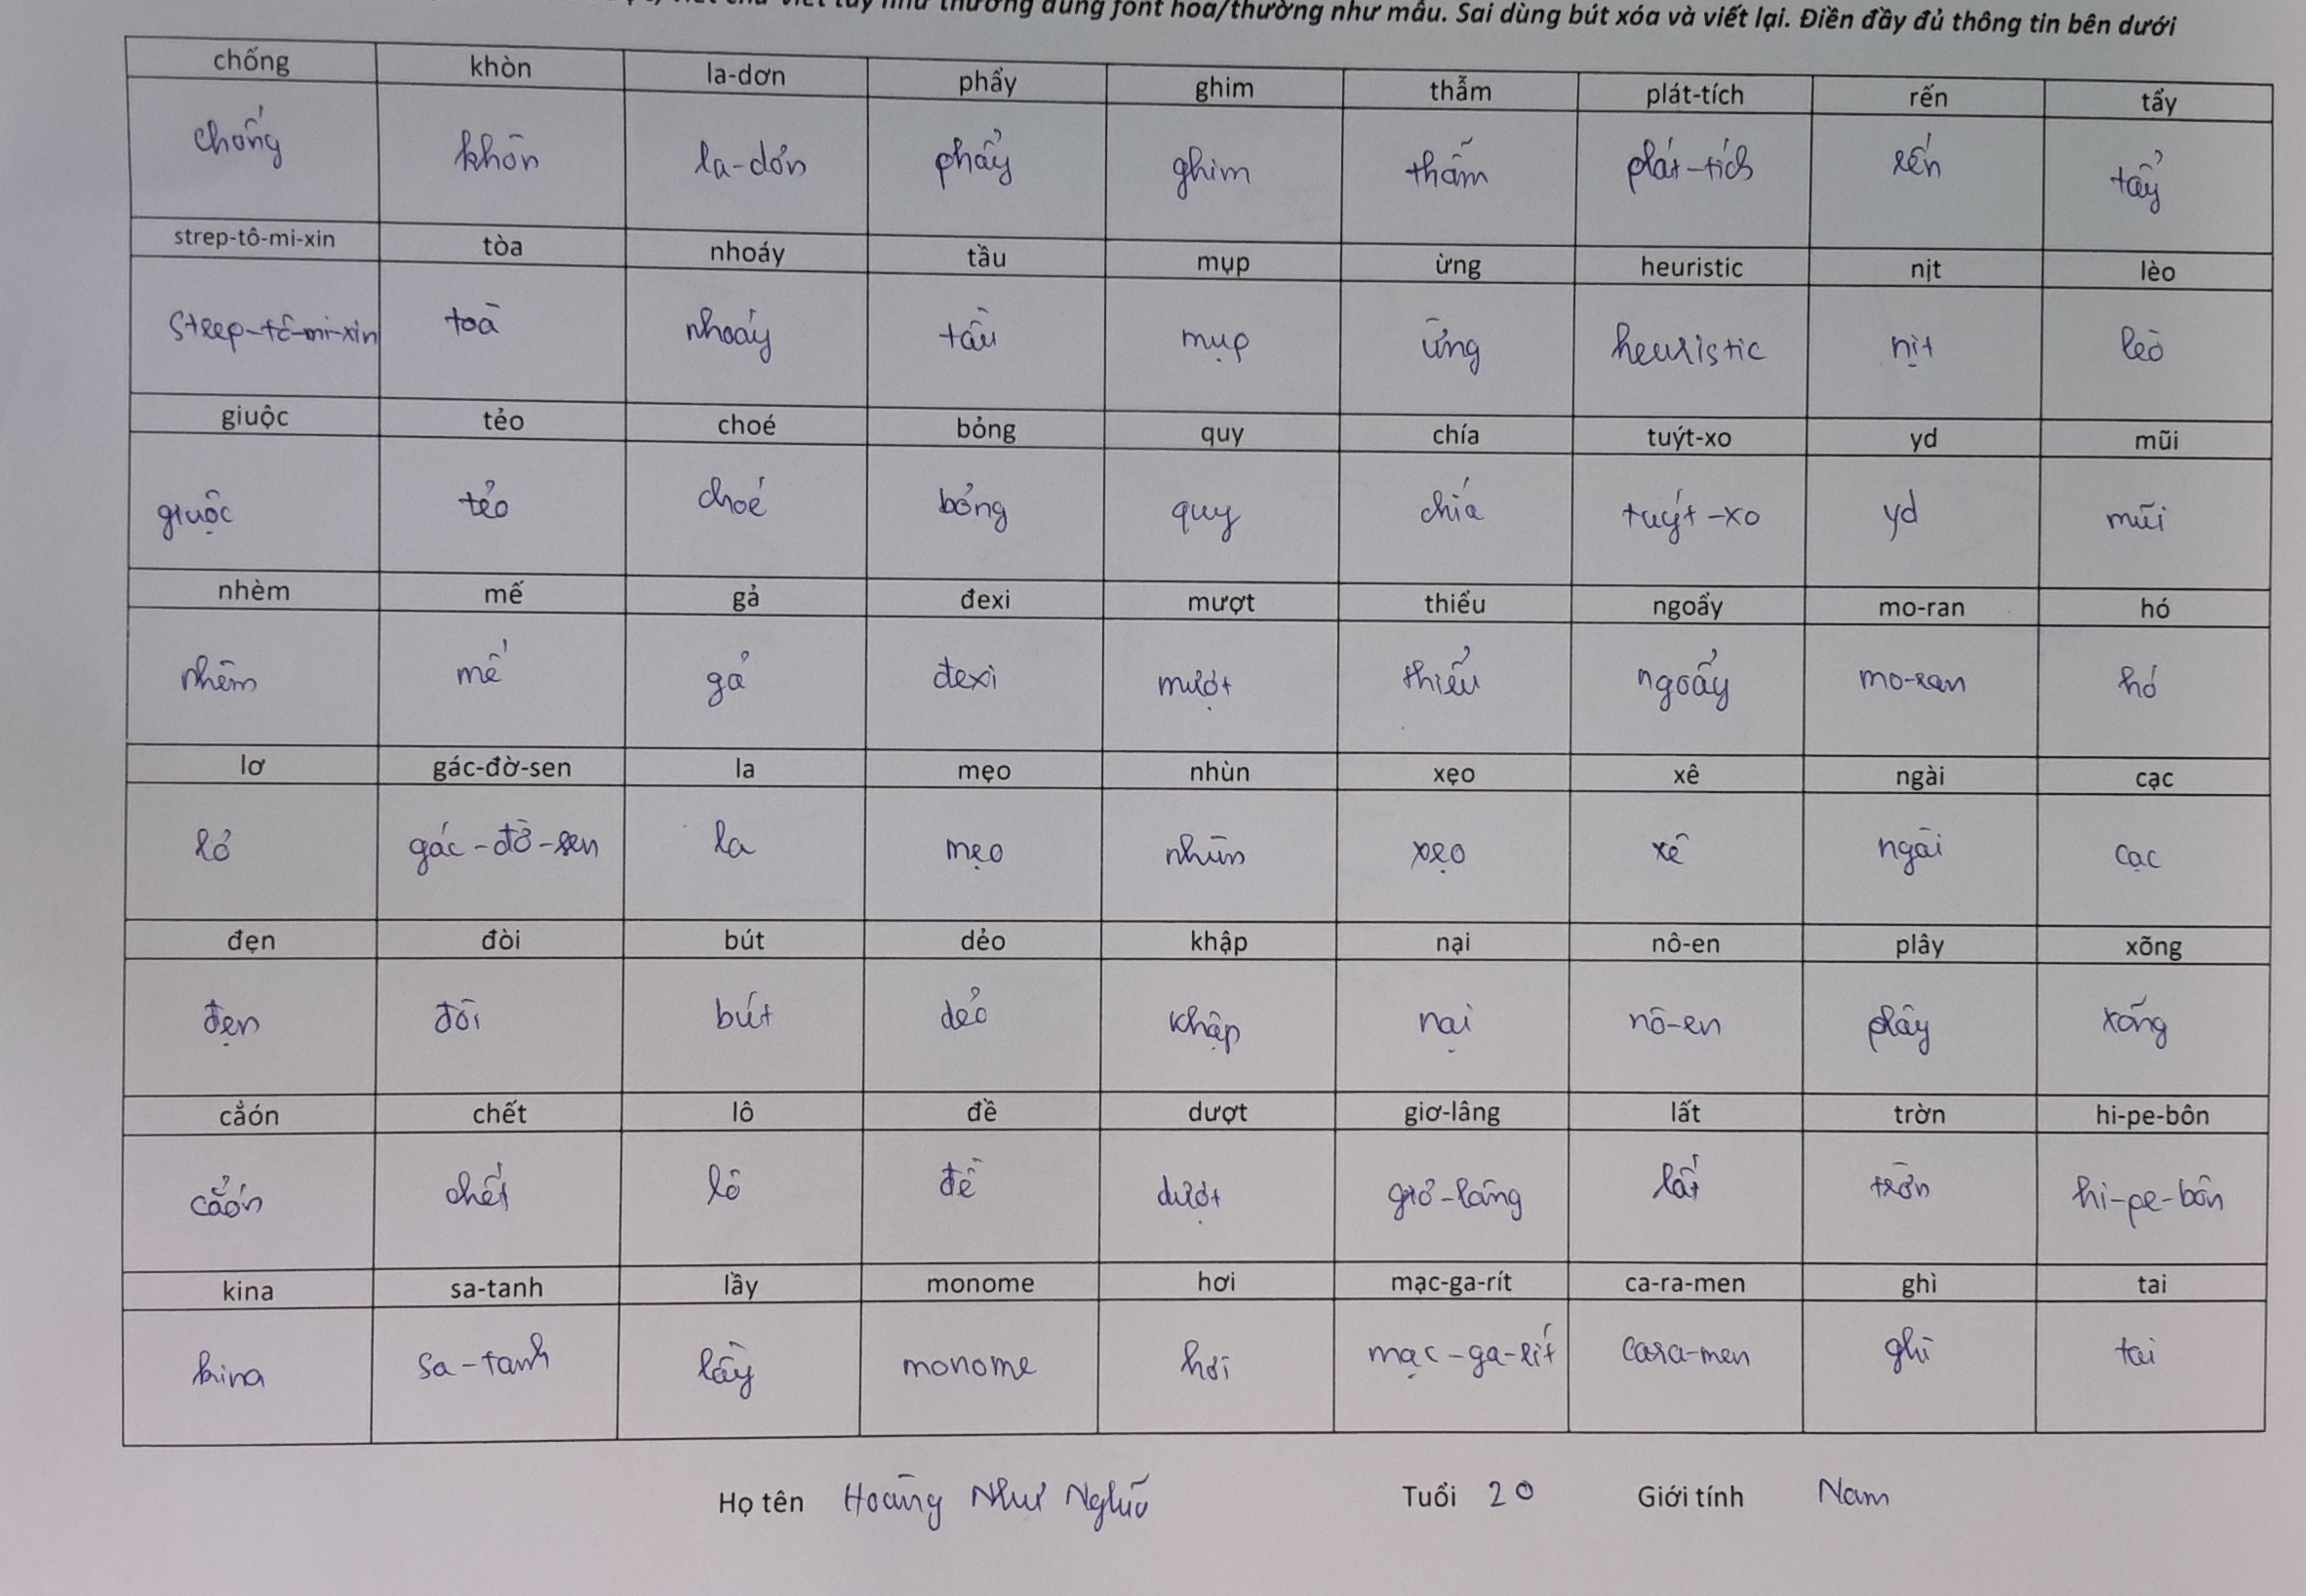 viết chữ viết tay như thường dùng font hoa/thường như mẫu. Sai dùng bút xóa và viết lại. Điền đầy đủ thông tin bên dưới
chống khòn la-dơn phẩy ghim thẫm plát-tích rến tẩy
chống khòn la-dơn phẩy ghim thẫm plát-tích rến tẩy
strep-tô-mi-xin tòa nhoáy tầu mụp ừng heuristic nịt lèo
strep-tô-mi-xin toà nhoáy tầu mụp ừng heuristic nịt lèo
giuộc tẻo choé bỏng quy chía tuýt-xo yd mũi
giuộc tẻo choé bỏng quy chía tuýt-xo yd mũi
nhèm mế gả đexi mượt thiểu ngoẩy mo-ran hó
nhèm mế gả đexi mượt thiểu ngoẩy mo-ran hó
lơ gác-đờ-sen la mẹo nhùn xẹo xê ngài cạc
lơ gác-đờ-sen la mẹo nhùn xẹo xê ngài cạc
đẹn đòi bút dẻo khập nại nô-en plây xõng
đẹn đòi bút dẻo khập nại nô-en plây xõng
cẳón chết lô đề dượt giơ-lâng lất tròn hi-pe-bôn
cẳón chết lô đề dượt giơ-lâng lất tròn hi-pe-bôn
kina sa-tanh lầy monome hơi mạc-ga-rít ca-ra-men ghì tai
kina sa-tanh lầy monome hơi mạc-ga-rít cara-men ghì tai
Họ tên Hoàng Như Nghĩa Tuổi 20 Giới tính Nam